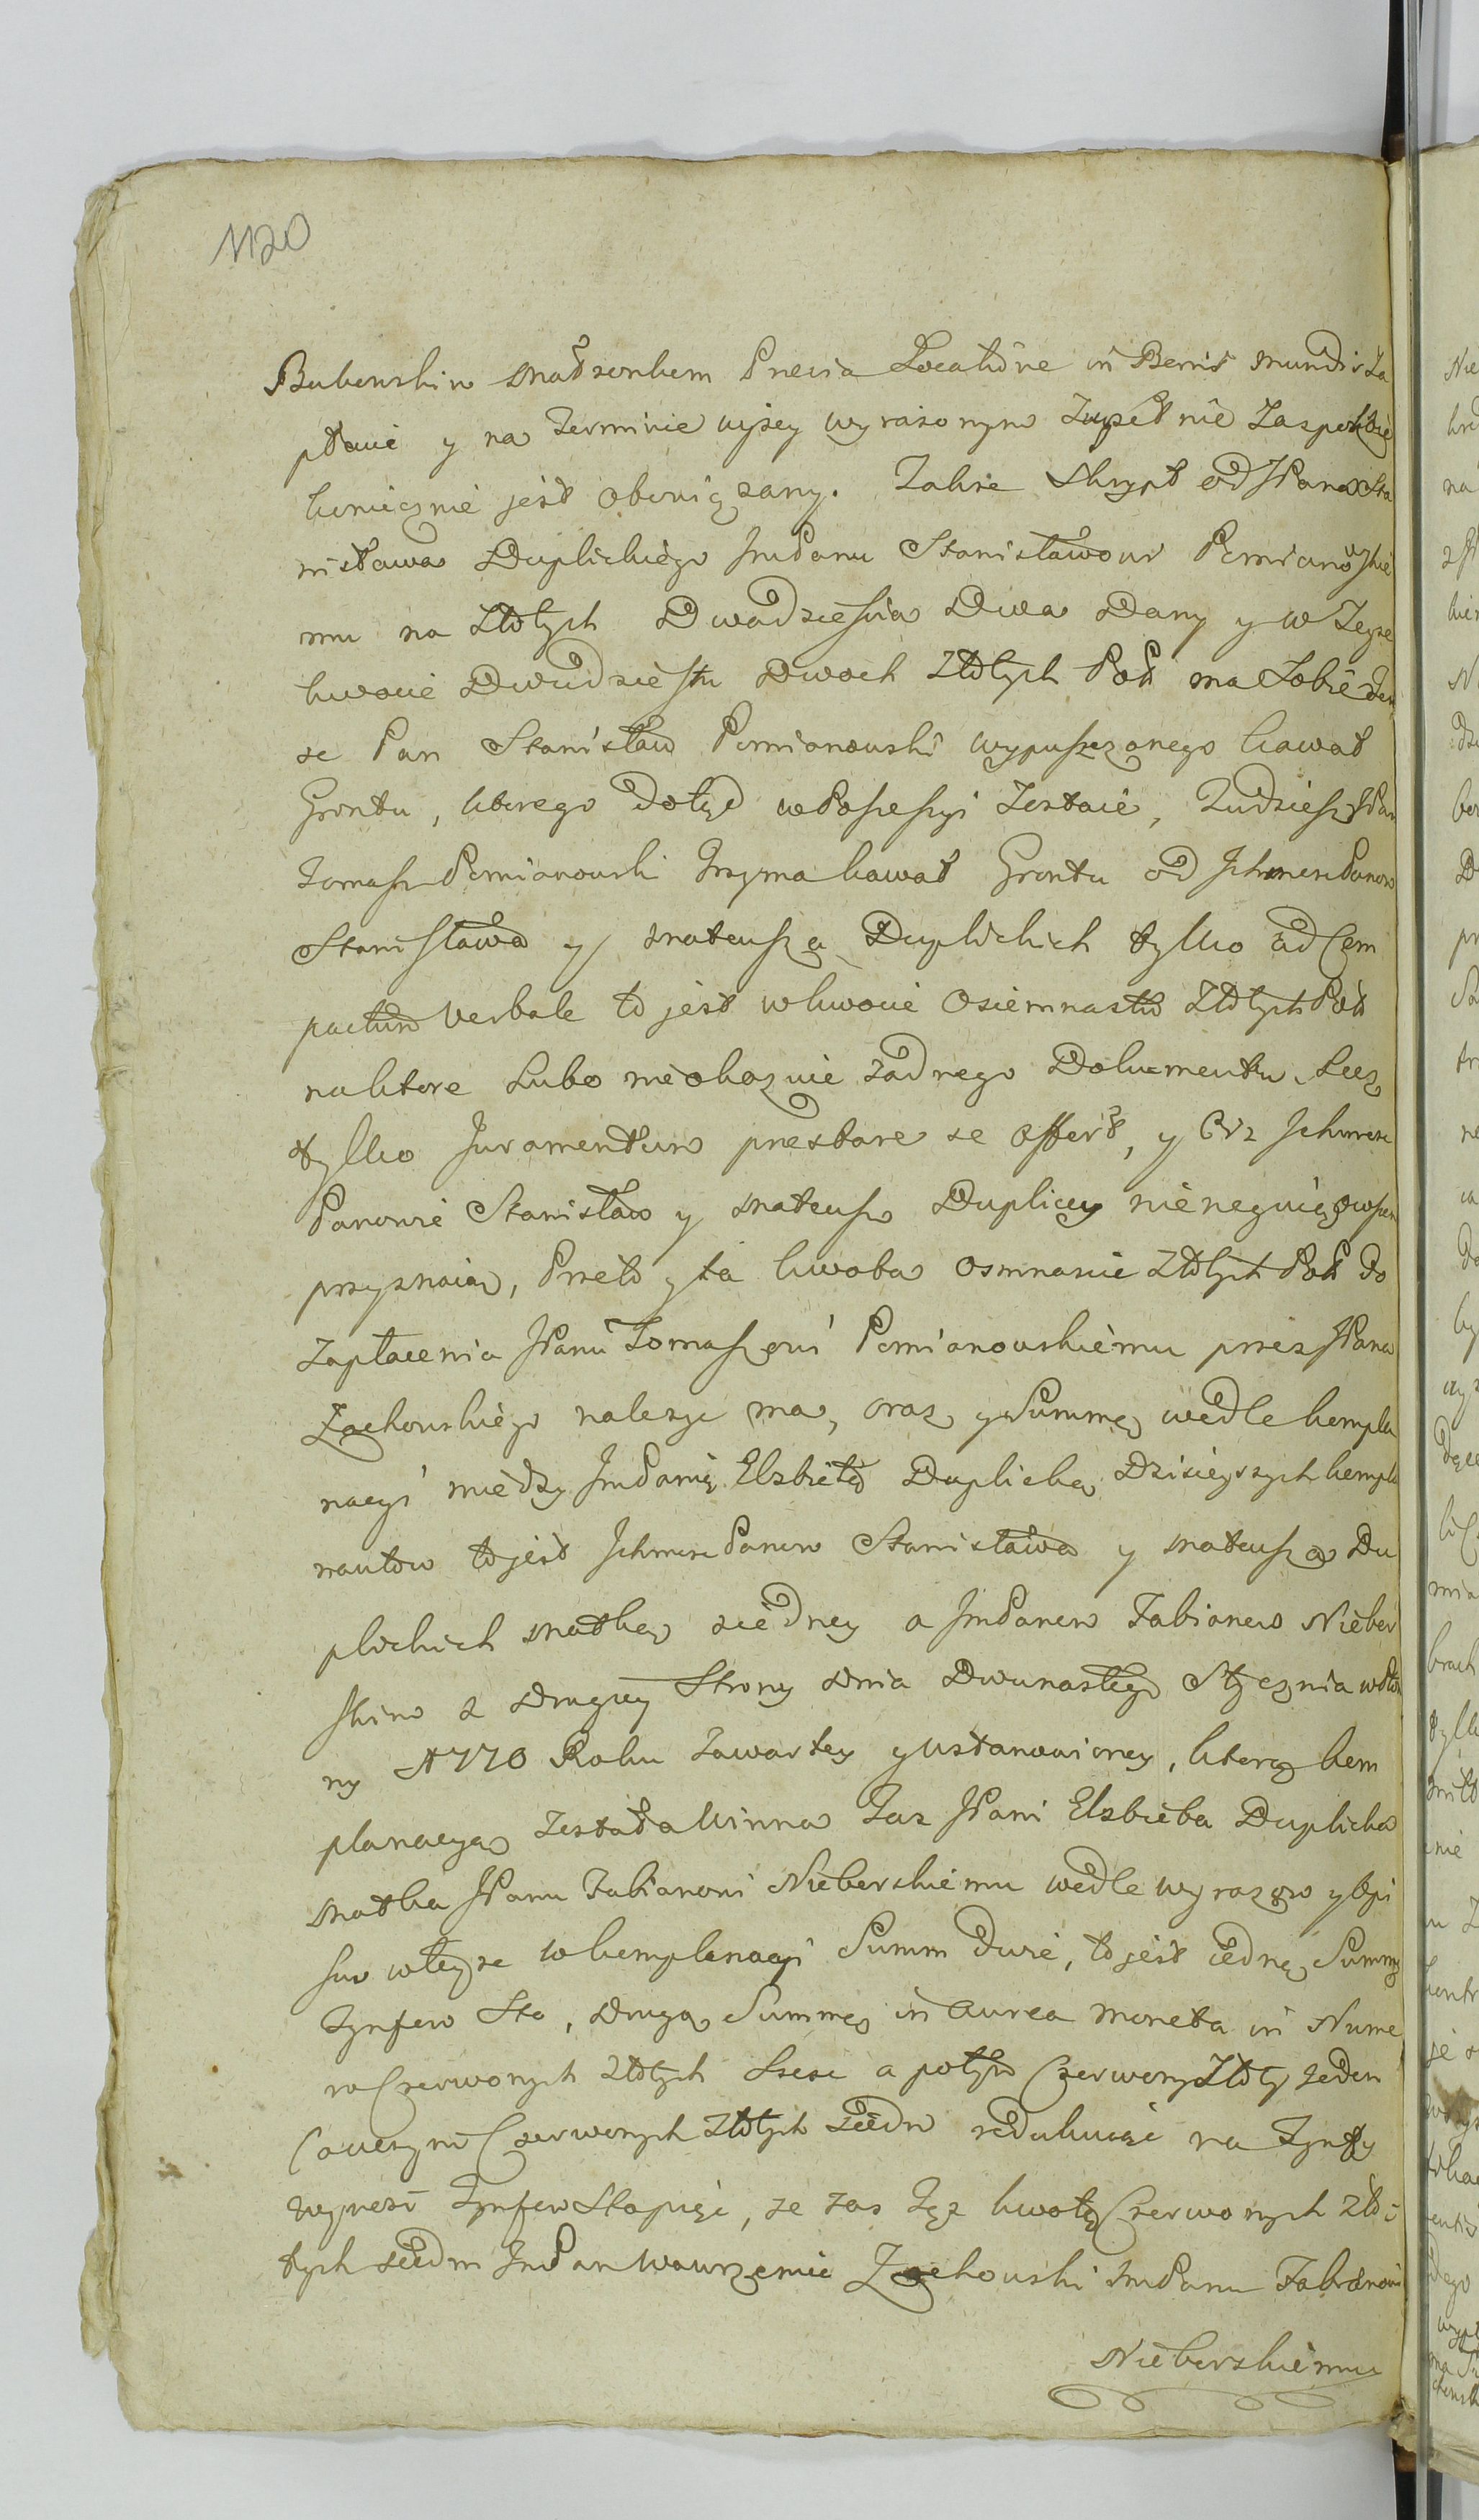 1120
Bubowskim Małżonkom Previa Locatione in Bonis Mundis Za
płacić y na Terminie wyżey wyrażonym Zupełnie Zaspokoić
koniecznie jest obowiązany. Także Skrypt od JPana Sta
nisława Duplickiego JmPanu Stanisławowi Pomianowskie
mu na Złotych Dwadziescia Dwa Dany y w Teyże
kwocie Dwudziestu Dwoch Złotych Pol: ma Sobie Ten
że Pan Stanisław Pomianowski wypuszczonego kawał
Gruntu, ktorego dotąd w Possessyi Zostaie, Tudziesz JPan
Tomasz Pomianowski Trzyma kawał Gruntu od Ichmość Panow
Stanisława y Mateusza Duplickich tylko ad Com
pactum verbale to jest w kwocie Osiemnastu Złotych Pol:
na ktore Lubo nie okazuie żadnego Dokumentu, Lecz
tylko Juramentum prestare se offert, y Ciż Ichmość
Panowie Stanisław y Mateusz Dupliccy nie neguią owszem
przyznaią, Przeto y ta kwota Osmnascie Złotych Pol: do
Zapłacenia JPanu Tomaszowi Pomianowskiemu przez JPana
Żochowskiego należyć ma, oraz y Summę wedle kompla
nacyi między JmPanią Elżbietą Duplicką Dzisieyszych kompla
nantow to jest Ichmość Panow Stanisława y Mateusza Du
plickich Matką z iedney a JmPanem Fabianem Niebor
skim z Drugiey Strony Dnia Dwunastego Stycznia
ny 1770 Roku Zawartey y ustanowioney, ktorą kom
planacyą Została Winna Taż JPani Elżbieta Duplicka
Matka JPanu Fabianowi Nieborskiemu wedle wyrazow y Opi
sow w teyże w komplanacyi Summ dwie, to jest iedną Summę
Tynfow Sto, Drugą Summę in Aurea Moneta in Nume
ro Czerwonych Złotych Szesc a potym Czerwony Złoty Jeden
Czerwonych Złotych Siedm redukuiąc na Tynfy
wynosi Tynfow Stopięć, że zas Tęż kwotę Czerwonych Zło
tych siedm JmPan Wawrzeniec Żochowski JmPanu Fabianowi
Nieborskiemu